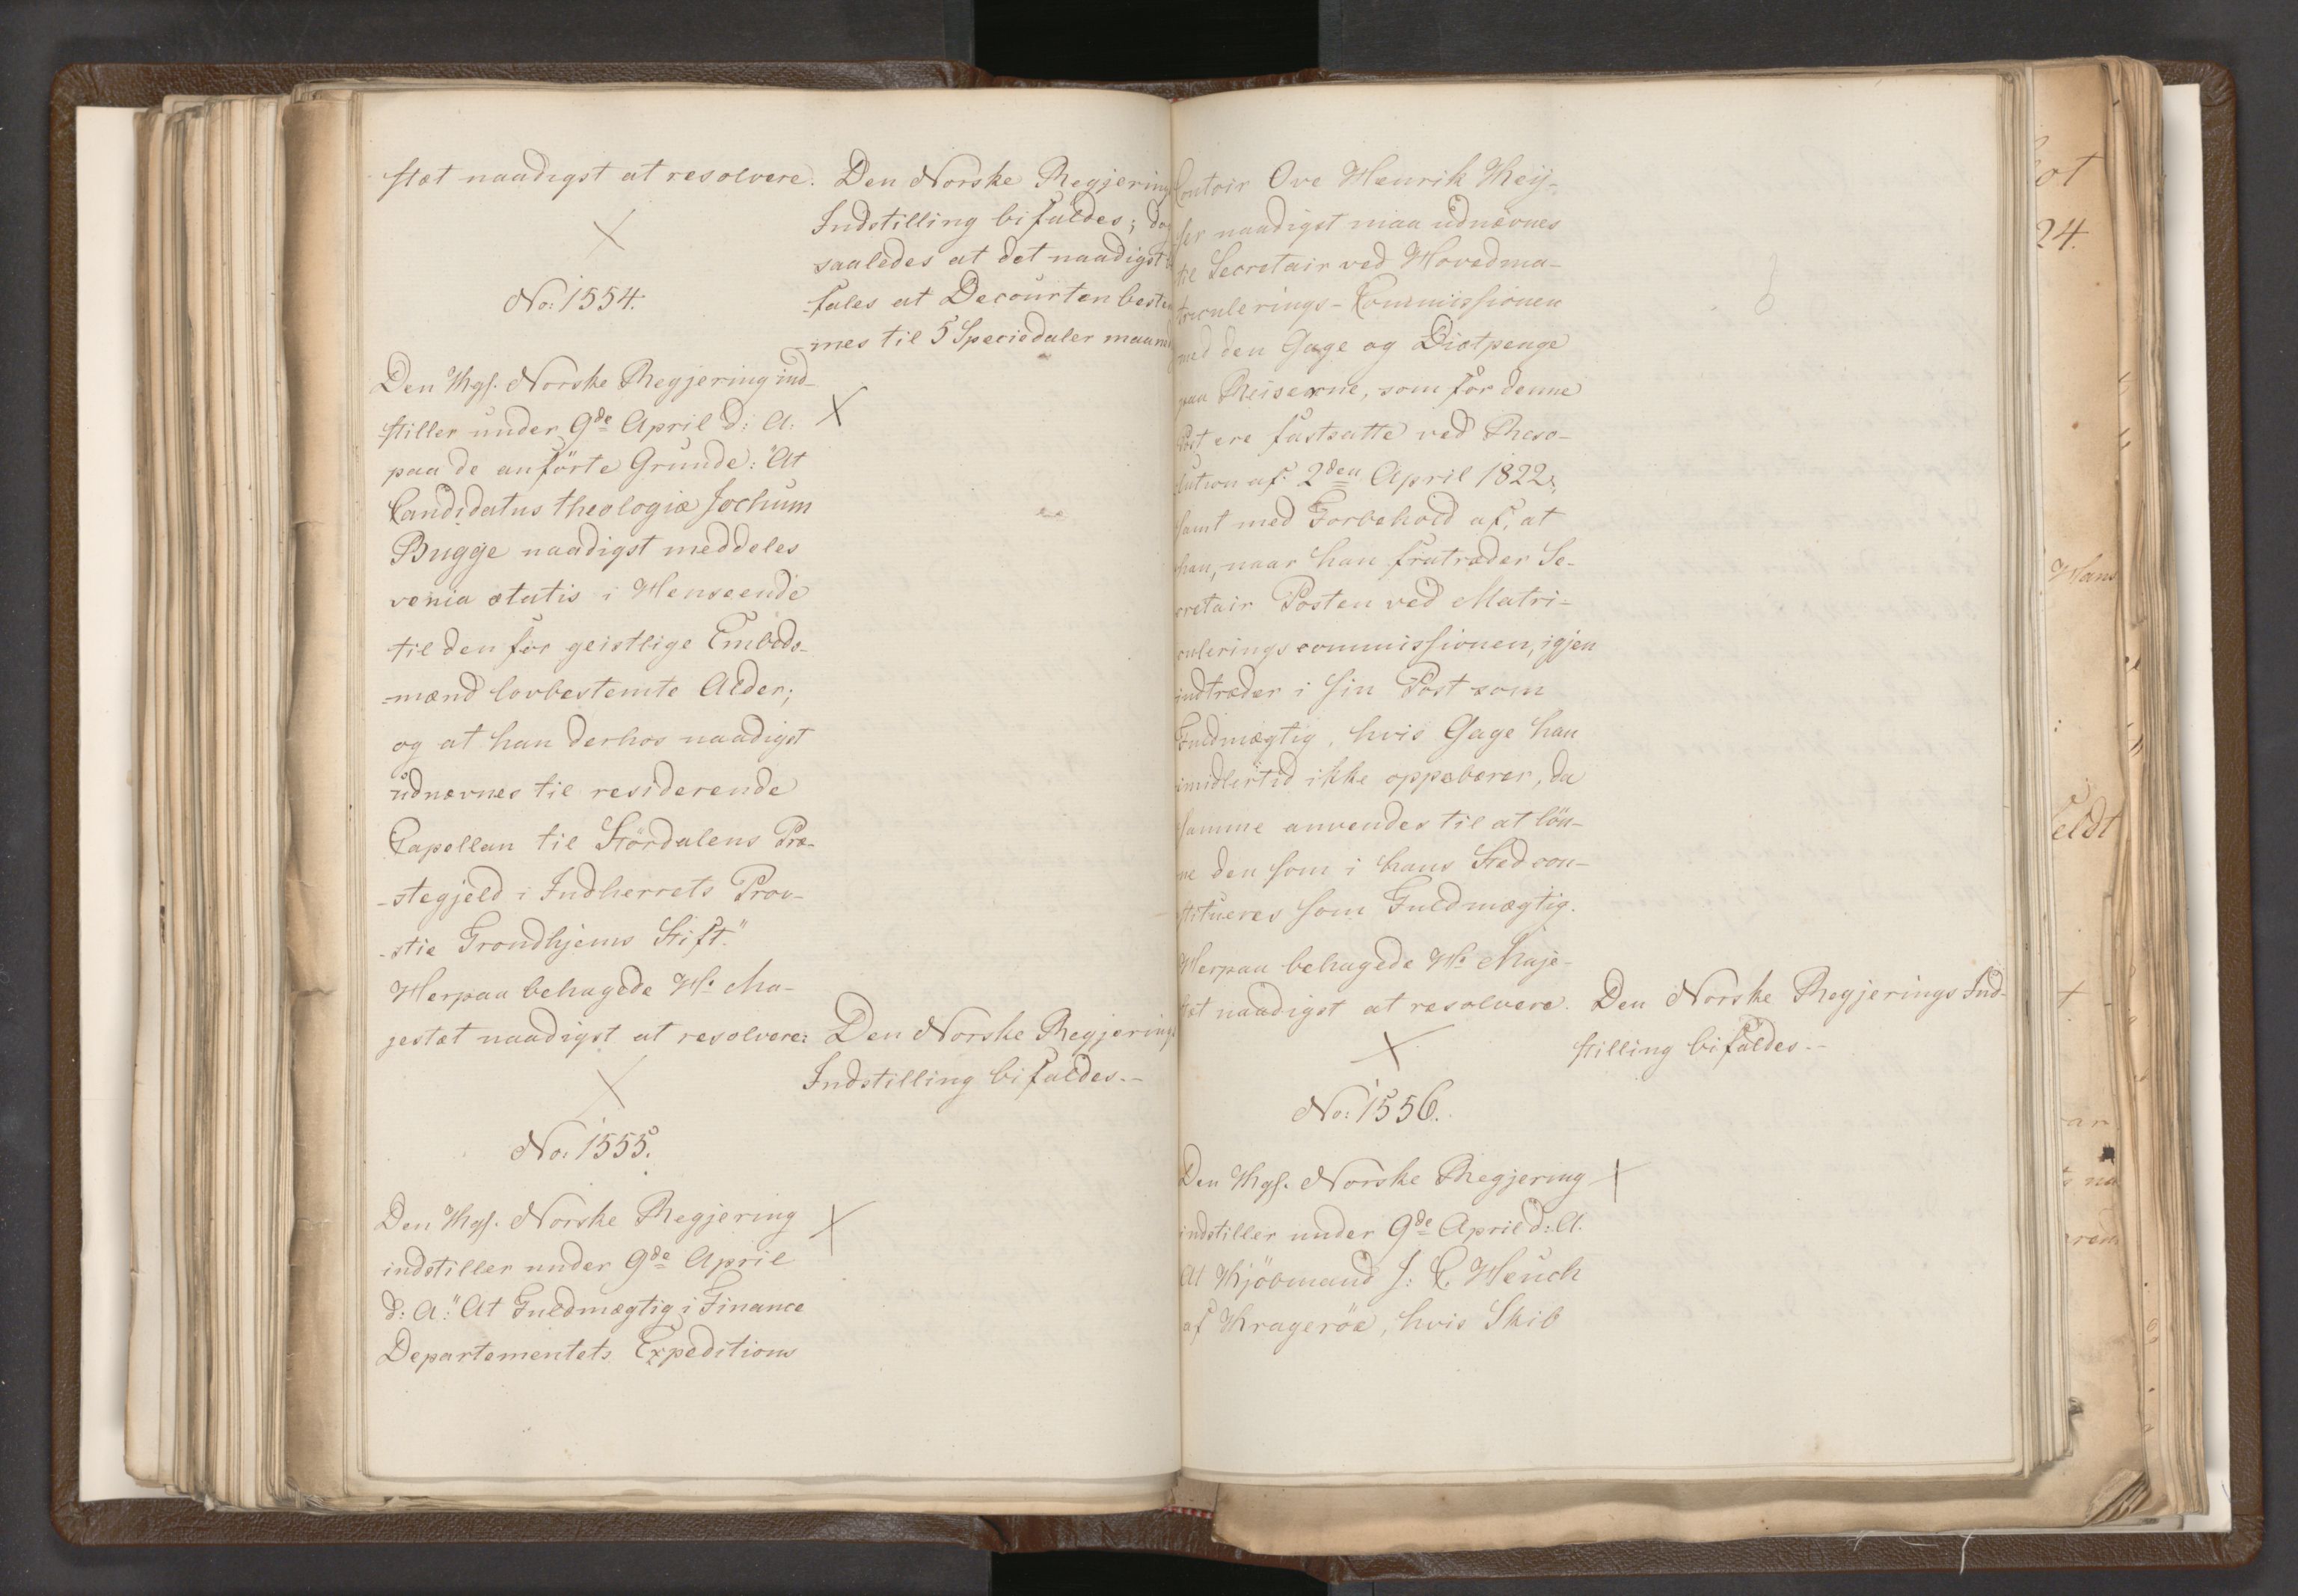 stæt naadigst at resolvere.
Den Norske Regjerings
Indstilling bifaldes; dog
saaledes at det naadigst
-fales at Decourten bestem
-mes til 5 Speciedaler maaned
No: 1554.
Den Kgl. Norske Regjering ind-
-stiller under 9de April d: A:
paa de anförte Grunde: "At
Candidatus theologiæ Jochum
Bugge naadigst meddeles
venia ætatis i Henseende
til den for geistlige Embeds-
-mænd lovbestemte Alder;
og at han derhos naadigst
udnævnes til residerende
Capellan til Stördalens Præ-
-stegjeld i Indherrets Prov-
-stie Trondhjems Stift."
Herpaa behagede H: Ma-
jestæt naadigst at resolvere:
Den Norske Regjerings
Indstilling bifaldes.-
No: 1555.
Den Kgl. Norske Regjering
indstiller under 9de April
d: A: "At Fuldmægtig i Finance
Departementets Expeditions
Contoir Ove Henrik Key-
ser naadigst maa udnævnes
til Secretair ved Hovedma-
triculerings-Commissionen
med den Gage og Diætpenge
paa Reiserne, som for denne
Post ere fastsatte ved Reso-
lution af 2den April 1822,
samt med Forbehold af, at
han, naar han fratræder Se-
cretair Posten ved Matri-
culeringscommissionen, igjen
indtræder i sin Post som
Fuldmægtig, hvis Gage han
imidlertid ikke oppebærer, da
samme anvendes til at lön-
ne den som i hans Sted con-
stitueres som Fuldmægtig.
Herpaa behagede H: Maje-
stæt naadigst at resolvere.
Den Norske Regjerings Ind-
stilling bifaldes.-
No: 1556.
Den Kgl. Norske Regjering
indstiller under 9de April d: A.
At Kjöbmand J: C. Heuch
af Krageröe, hvis Skib
24.
Hans